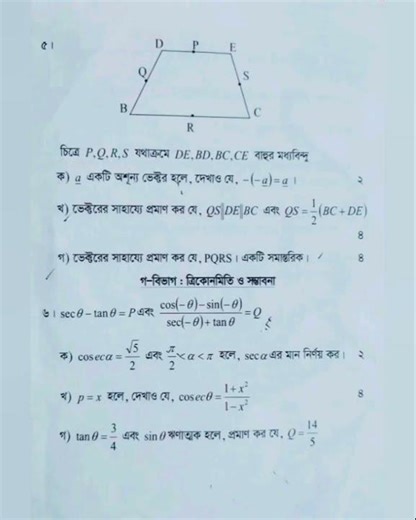 ৫।
D P E
Q S
B C
R
চিত্রে P,Q,R,S যথাক্রমে DE,BD,BC,CE বাহুর মধ্যবিন্দু
ক) a একটি অশূন্য ভেক্টর হলে, দেখাও যে, −(−a)=a । ২
খ) ভেক্টরের সাহায্যে প্রমাণ কর যে, QS||DE||BC এবং QS = 1/2 (BC + DE)
৪
গ) ভেক্টরের সাহায্যে প্রমাণ কর যে, PQRS। একটি সামান্তরিক। ৪
গ-বিভাগ : ত্রিকোনমিতি ও সম্ভাবনা
৬। secθ − tanθ = P এবং (cos(−θ) − sin(−θ))/(sec(−θ) + tanθ) = Q
ক) cosecα = √5/2 এবং π/2 < α < π হলে, secα এর মান নির্ণয় কর। ২
খ) p = x হলে, দেখাও যে, cosecθ = (1 + x²)/(1 − x²) ৪
গ) tanθ = 3/4 এবং sinθ ঋণাত্মক হলে, প্রমাণ কর যে, Q = 14/5